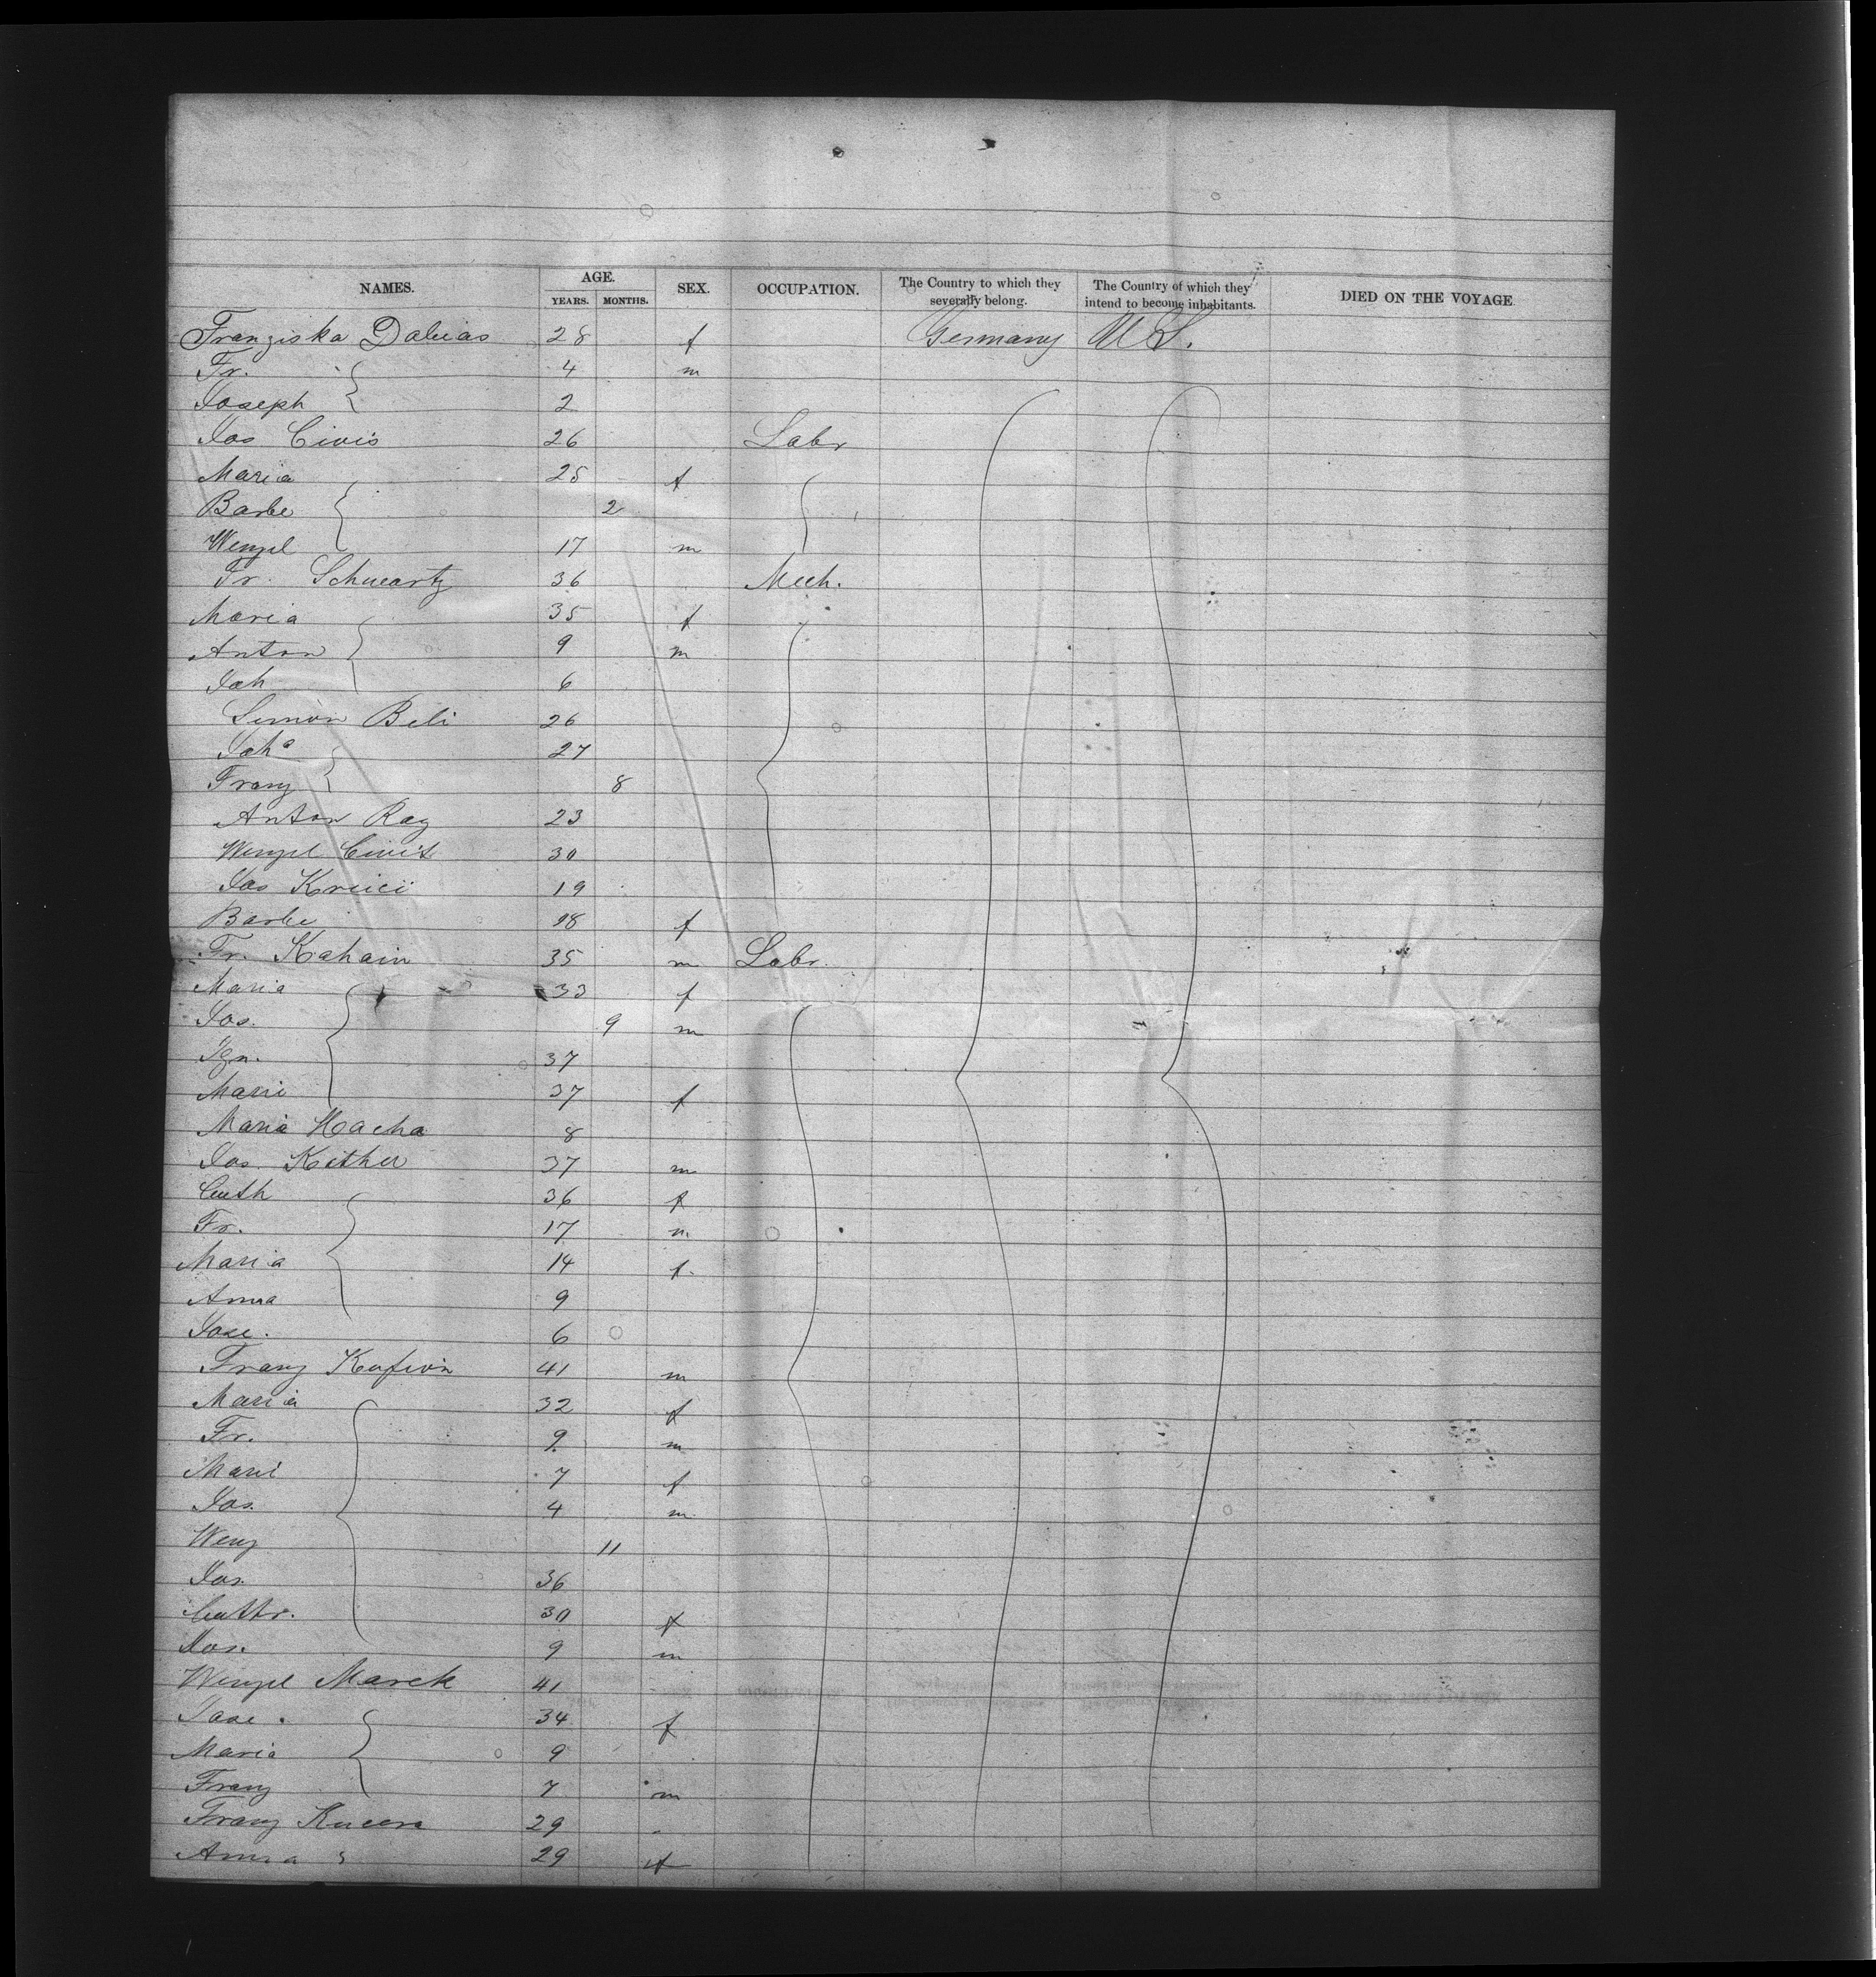 NAMES. AGE. YEARS. MONTHS. SEX. OCCUPATION. The Country to which they severally belong. The Country of which they intend to become inhabitants. DIED ON THE VOYAGE
Franziska 28 f Germany U S.
Fr. 4 m
Joseph 2
Jos Civis 26 Labr
Maria 25 f
Barbe 2
Wenzel 17 m
Fr. Schwartz 36 Mech.
Maria 35 f
Anton 9 m
Joh 6
Simon Beli 26
Joha 27
Franz 8
Anton 23
Wenzel 30
Jos 19
Barbe 18 f
Fr. Kahain 35 m Labr.
Maria 33 f
Jos. 9 m
Ign. 37
Marie 37 f
Maria Hacha 8
Jos. 37 m
Cath 36 f
Fr. 17 m
Maria 14 f.
Anna 9
Jose. 6
Franz 41 m
Maria 32 f
Fr. 9 m
Mari 7 f
Jos. 4 m
Wenz 11
Jos. 36
Cathr. 30 f
Jos. 9 m
Wenzel Marek 41
Jose. 34 f
Maria 9
Franz 7 m
Franz Kucera 29
Anna 29 f